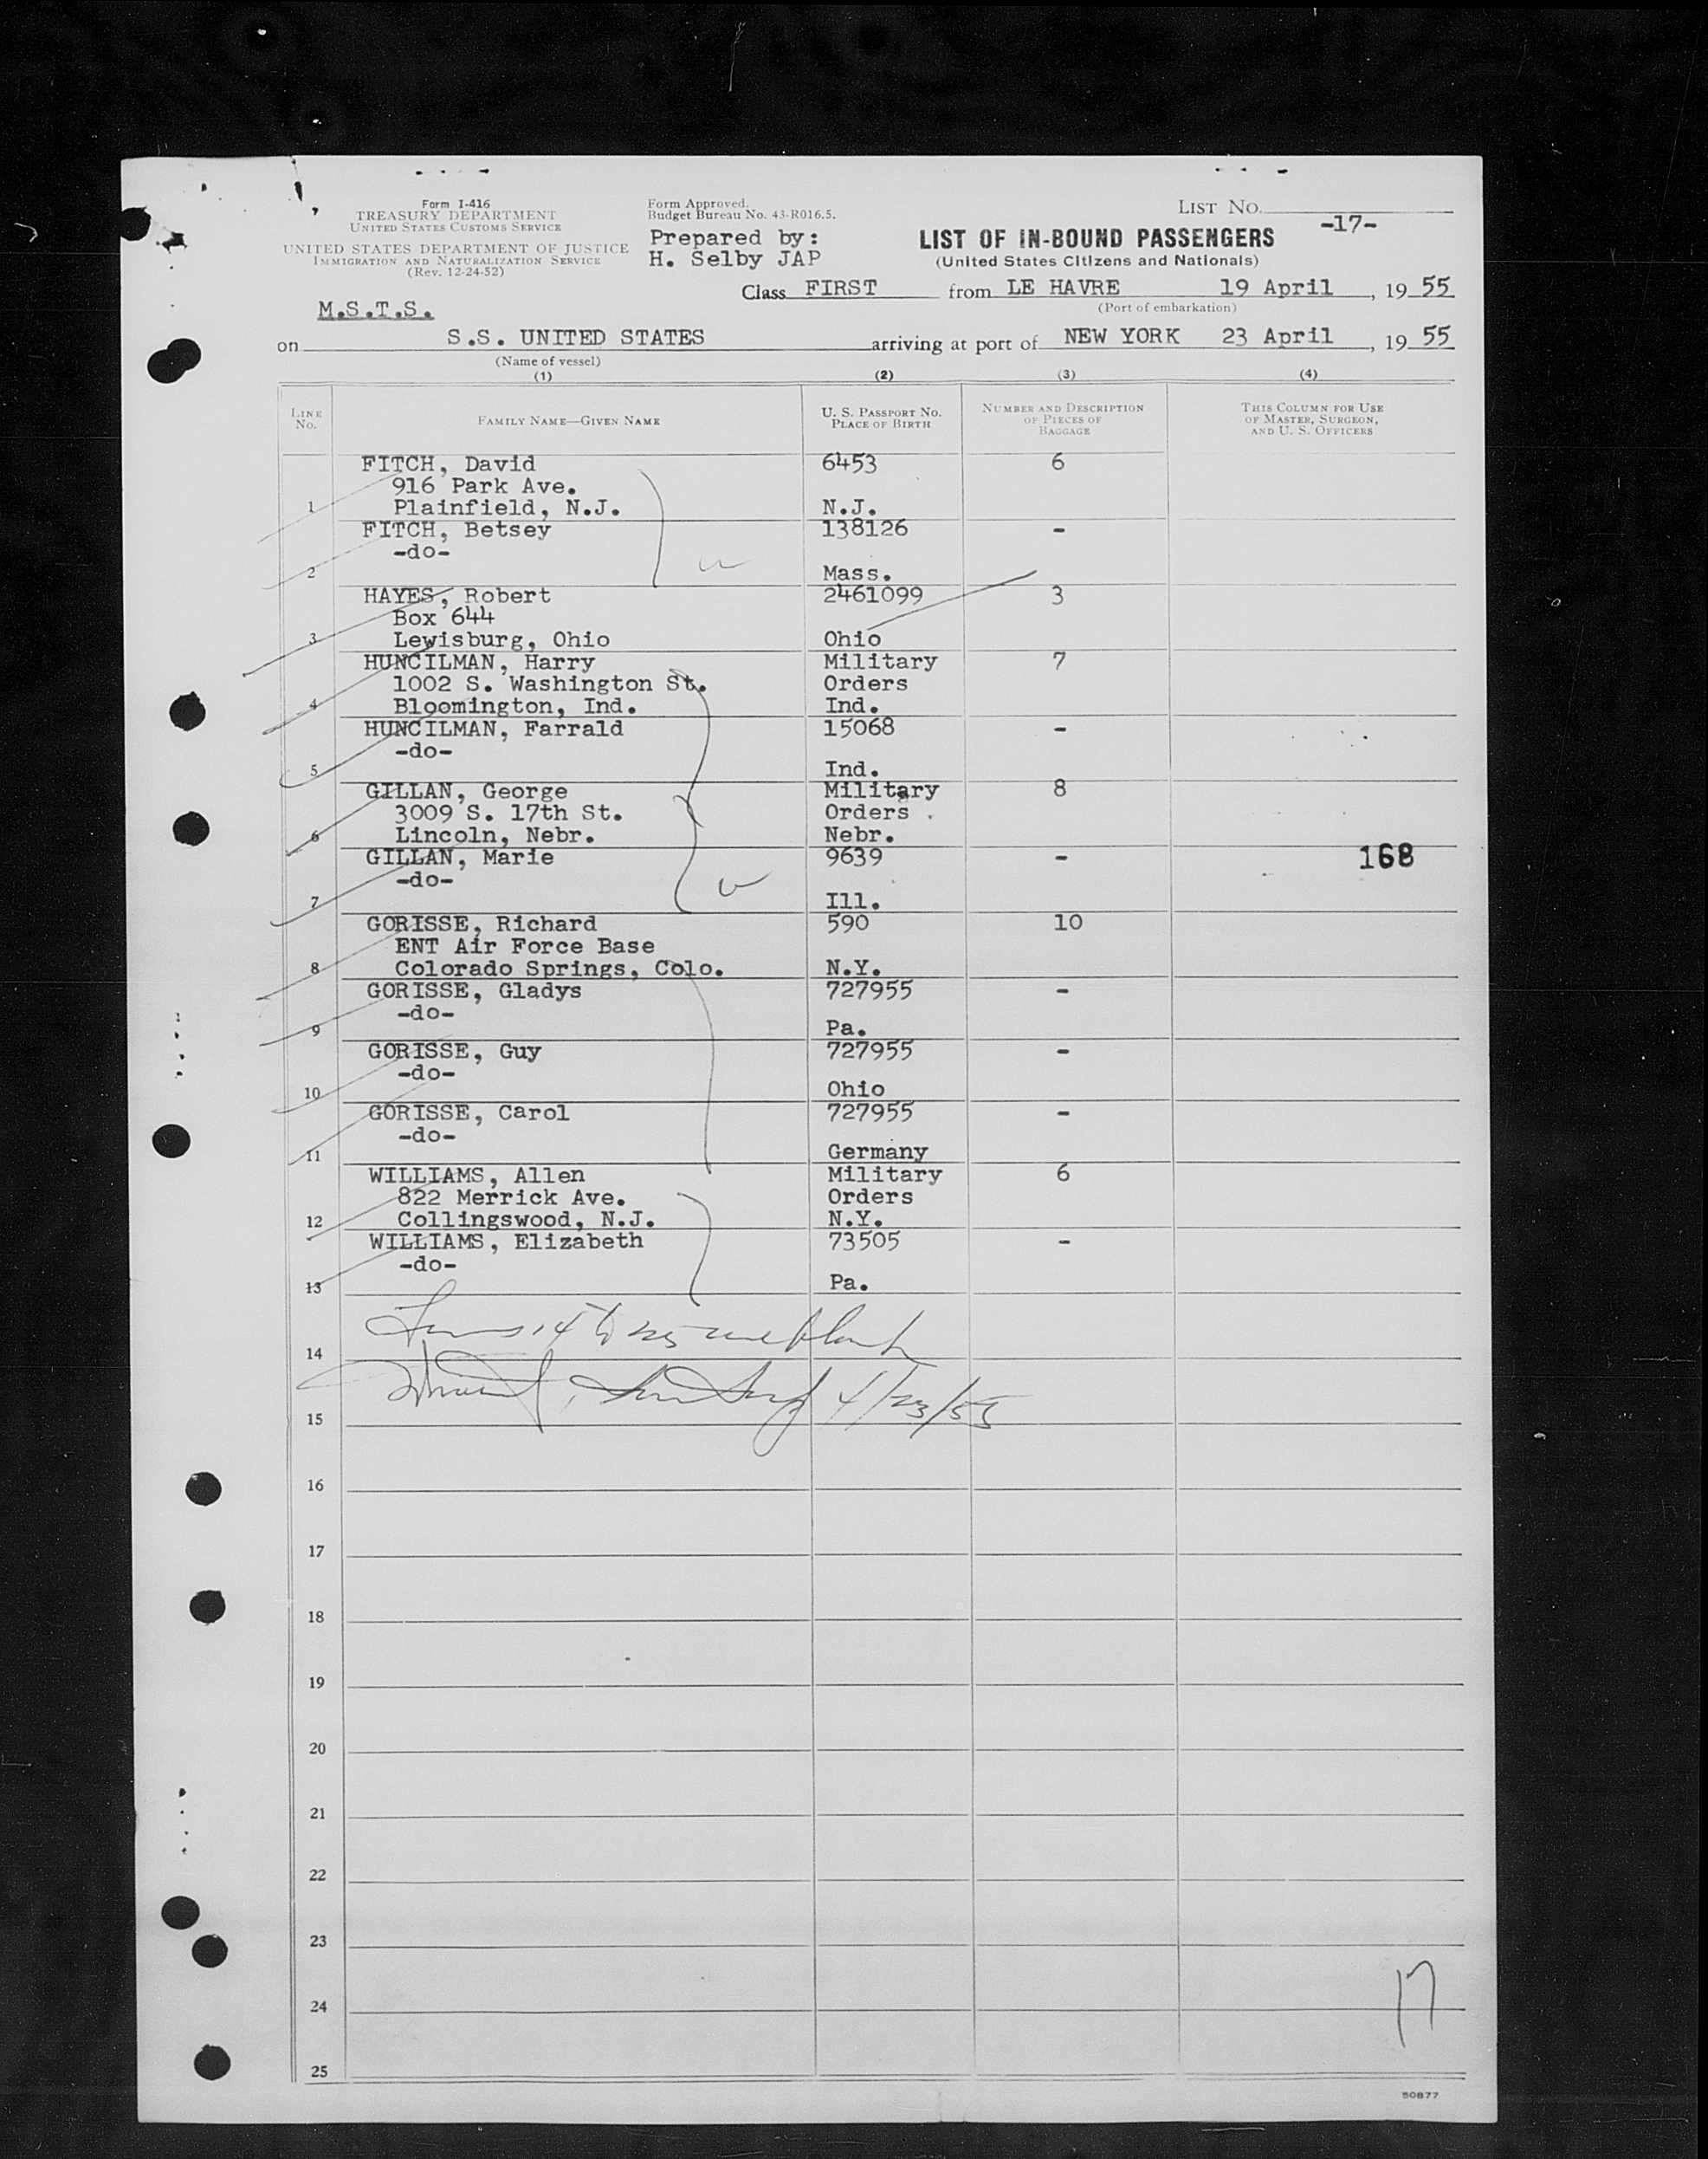 Form I-416
TREASURY DEPARTMENT
UNITED STATES CUSTOMS SERVICE
UNITED STATES DEPARTMENT OF JUSTICE
IMMIGRATION AND NATURALIZATION SERVICE
(Rev. 12-24-52)
Form Approved.
Budget Bureau No. 43-R016.5.
Prepared by:
H. Selby JAP
LIST NO.
-17-
LIST OF IN-BOUND PASSENGERS
(United States Citizens and Nationals)
Class FIRST from LE HAVRE 19 April, 1955
(Port of embarkation)
M.S.T.S.
on S.S. UNITED STATES arriving at port of NEW YORK 23 April, 1955
(Name of vessel)
(1) (2) (3) (4)
LINE NO. FAMILY NAME—GIVEN NAME U. S. PASSPORT NO. PLACE OF BIRTH NUMBER AND DESCRIPTION OF PIECES OF BAGGAGE THIS COLUMN FOR USE OF MASTER, SURGEON, AND U. S. OFFICERS
FITCH, David 6453 6
916 Park Ave.
1 Plainfield, N.J. N.J.
FITCH, Betsey 138126 -
-do-
2 Mass.
HAYES, Robert 2461099 3
Box 644
3 Lewisburg, Ohio Ohio
HUNCILMAN, Harry Military 7
1002 S. Washington St. Orders
4 Bloomington, Ind. Ind.
HUNCILMAN, Farrald 15068 -
-do-
5 Ind.
GILLAN, George Military 8
3009 S. 17th St. Orders
6 Lincoln, Nebr. Nebr.
GILLAN, Marie 9639 - 168
-do-
7 Ill.
GORISSE, Richard 590 10
ENT Air Force Base
8 Colorado Springs, Colo. N.Y.
GORISSE, Gladys 727955 -
-do-
9 Pa.
GORISSE, Guy 727955 -
-do-
10 Ohio
GORISSE, Carol 727955 -
-do-
11 Germany
WILLIAMS, Allen Military 6
822 Merrick Ave. Orders
12 Collingswood, N.J. N.Y.
WILLIAMS, Elizabeth 73505 -
-do-
13 Pa.
Lines 14 to 25 are blank
14
4/23/55
15
16
17
18
19
20
21
22
23
24
17
25
50877